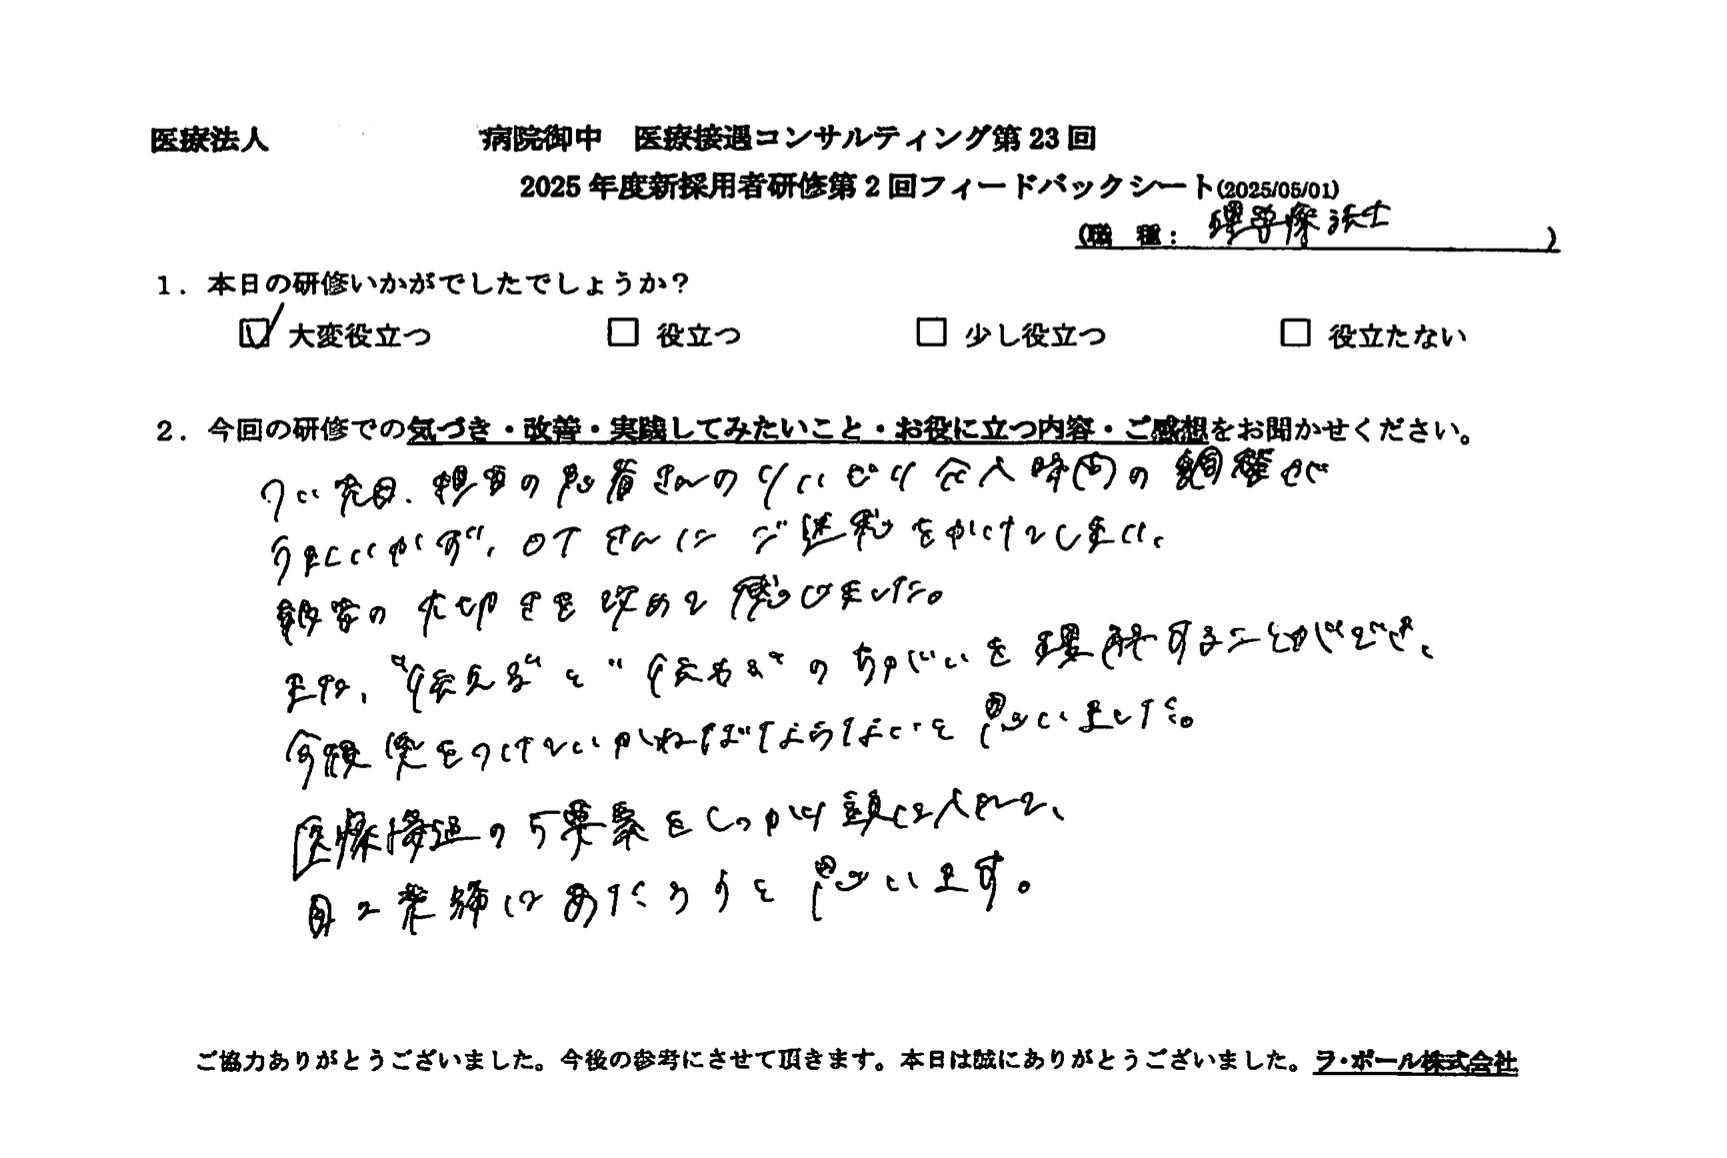 医療法人 病院御中 医療接遇コンサルティング第23回
2025年度新採用者研修第2回フィードバックシート(2025/05/01)
(職 種: 理学療法士 )
1. 本日の研修いかがでしたでしょうか?
☑ 大変役立つ □ 役立つ □ 少し役立つ □ 役立たない
2. 今回の研修での気づき・改善・実践してみたいこと・お役に立つ内容・ご感想をお聞かせください。
つい先日、担当の患者さんのリハビリ介入時間の調整が
うまくいかず、OTさんにご迷惑をかけてしまい、
報告の大切さを改めて感じました。
また、"伝える"と"伝わる"のちがいを理解することができ、
今後気をつけていかねばならないと思いました。
医療接遇の5要素をしっかり頭に入れて、
日々業務にあたろうと思います。
ご協力ありがとうございました。今後の参考にさせて頂きます。本日は誠にありがとうございました。ラ・ポール株式会社